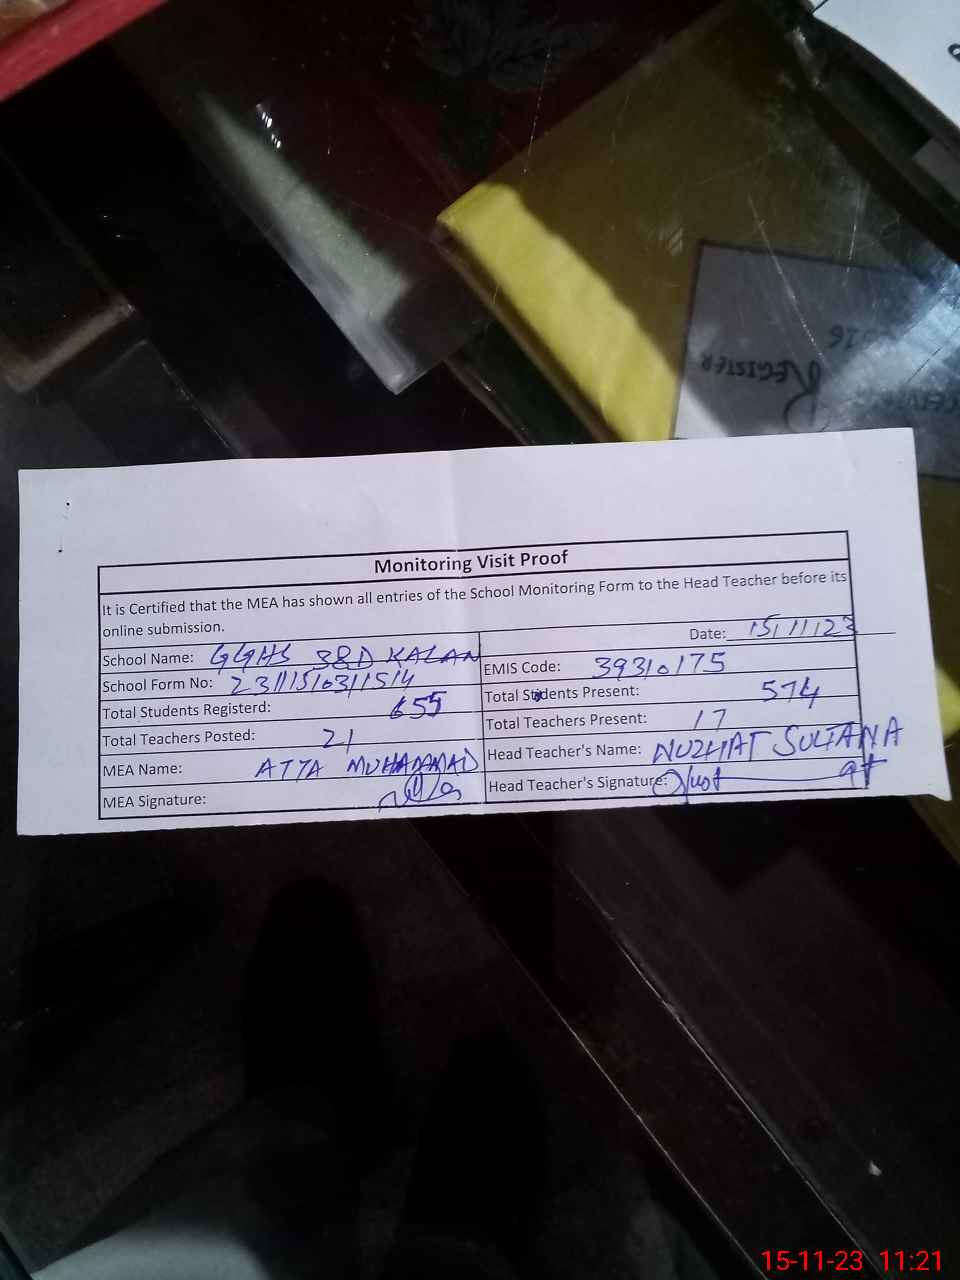 REGISTER
Monitoring Visit Proof
It is Certified that the MEA has shown all entries of the School Monitoring Form to the Head Teacher before its
online submission.
Date: 15/11/23
School Name: GGHS 38D KALAN
EMIS Code: 39310175
School Form No: 23111510311514
Total Students Present: 574
Total Students Registerd: 655
Total Teachers Present: 17
Total Teachers Posted: 21
Head Teacher's Name: NUZHAT SULTANA
MEA Name: ATTA MUHAMMAD
Head Teacher's Signature:
MEA Signature:
15-11-23 11:21